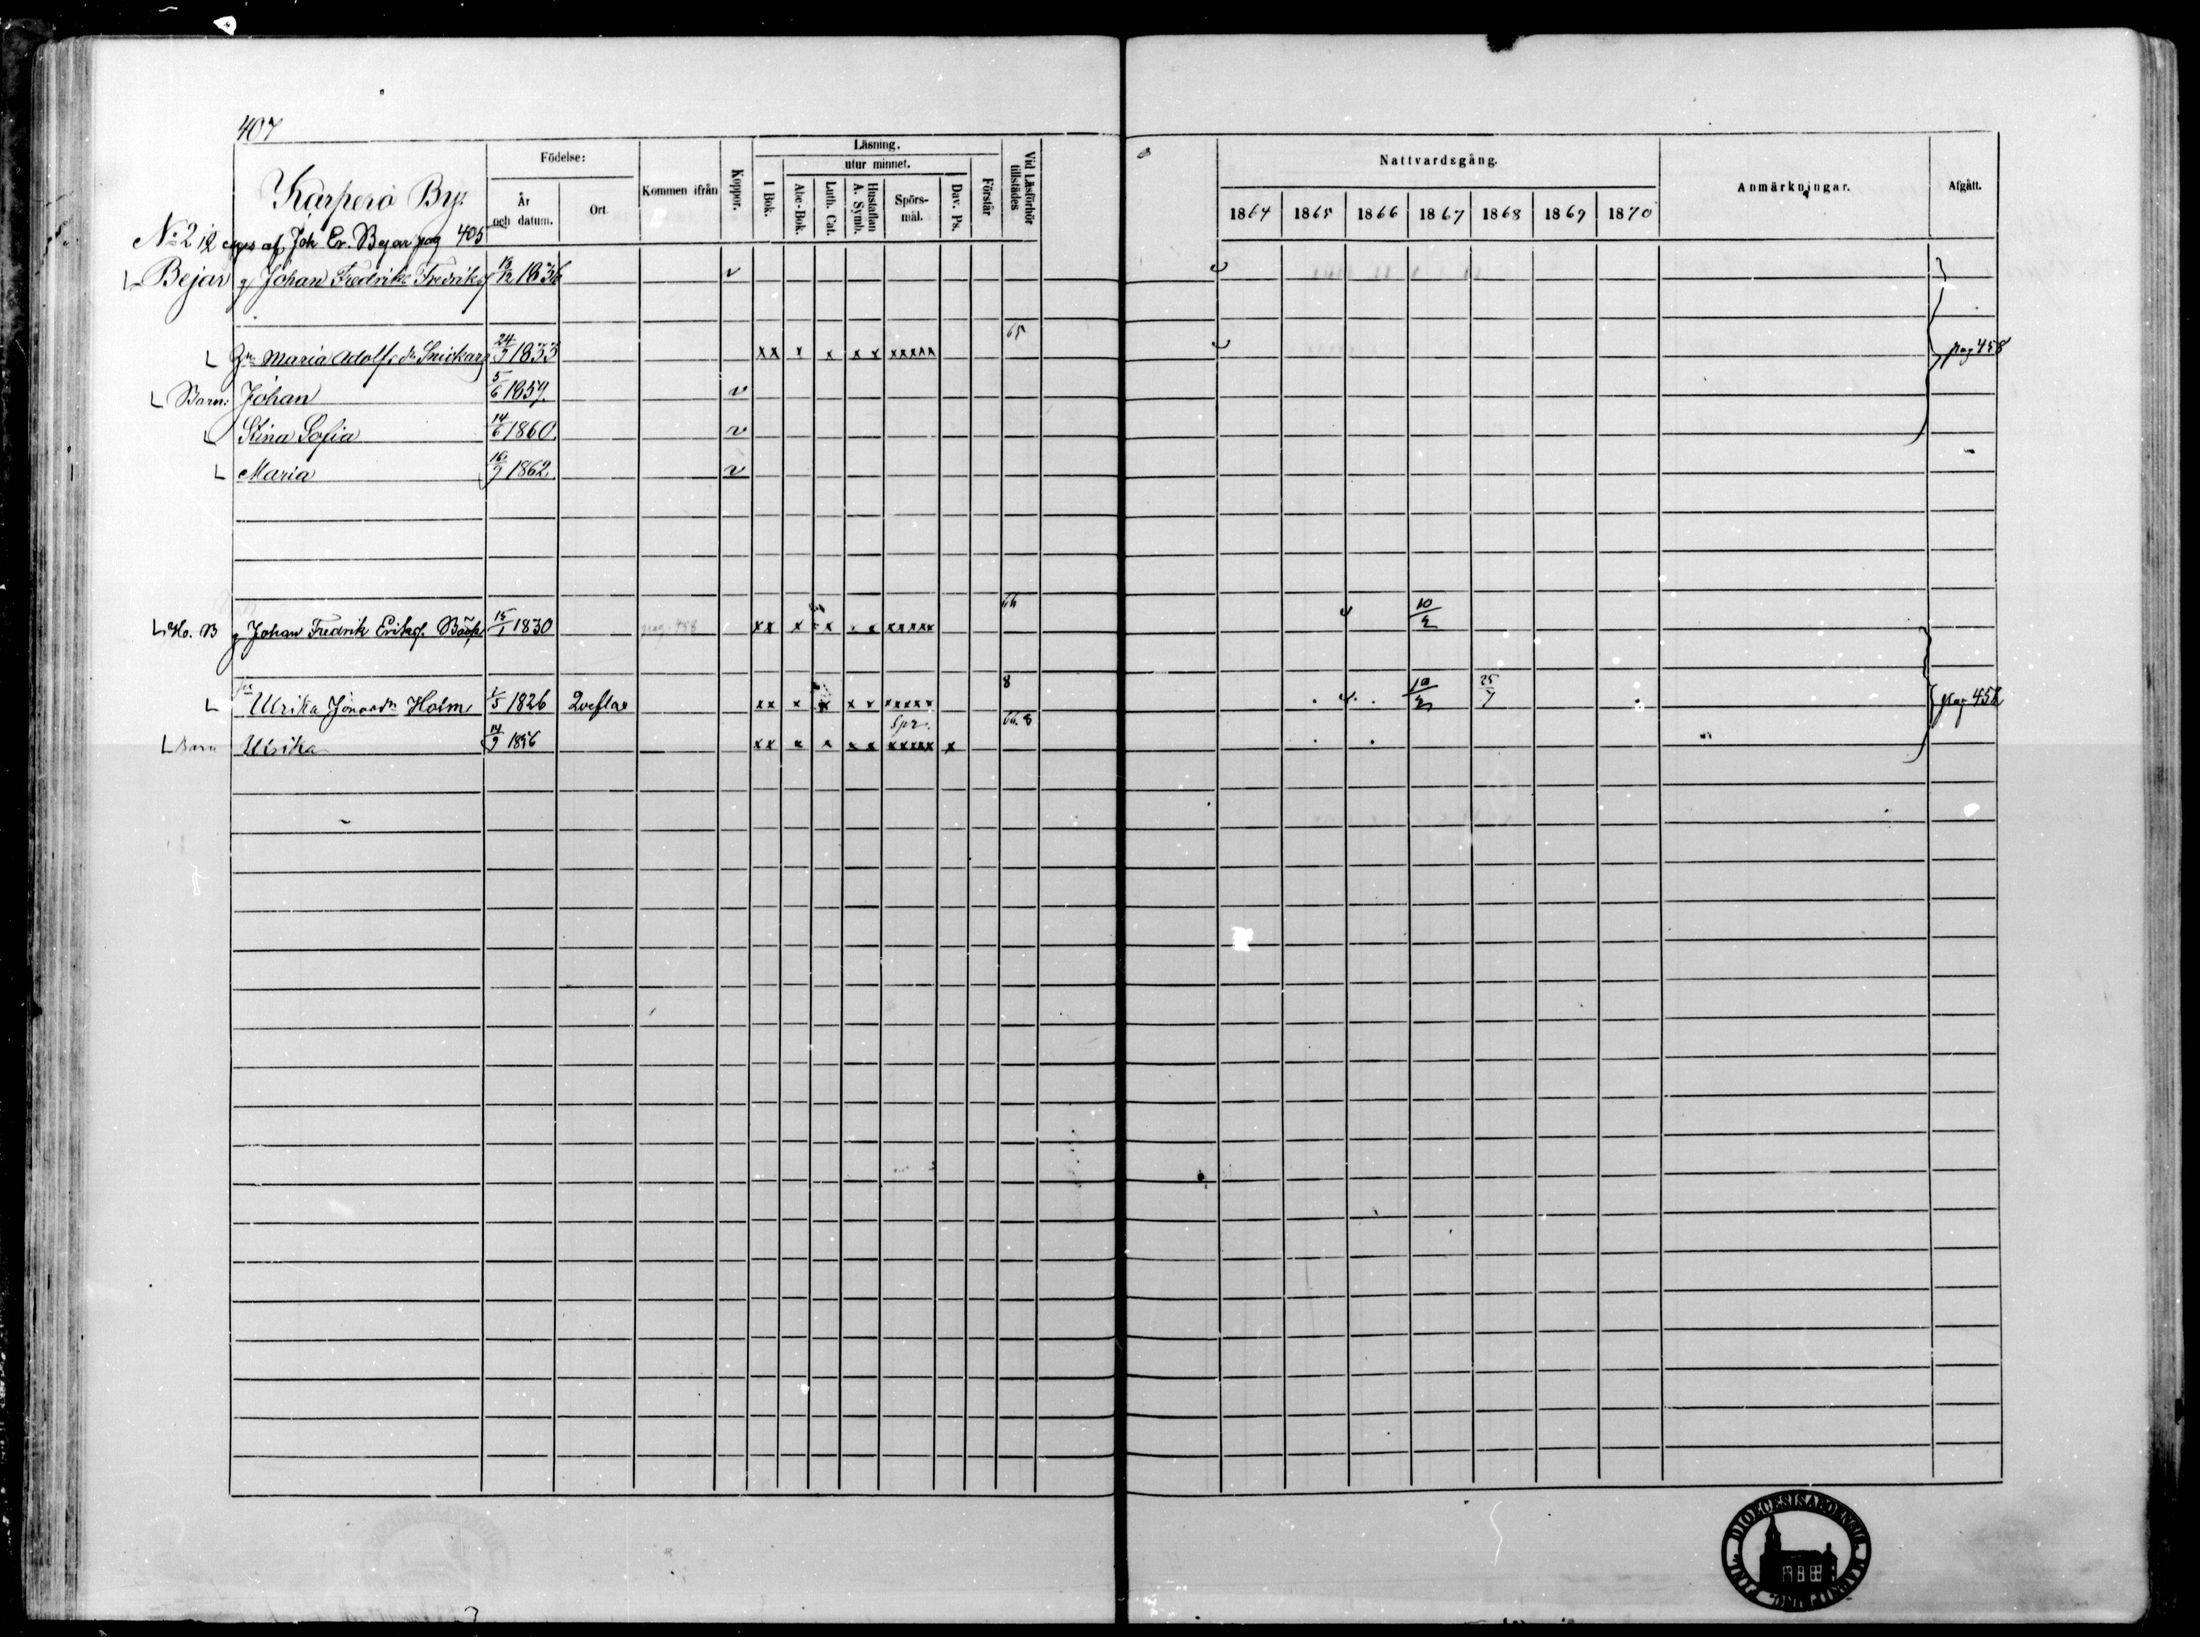 407
Födelse: Läsning. Nattvardsgång.
Karperö By. År och datum. Ort. Kommen ifrån Koppor. I Bok. utur minnet. Abc-Bok. Luth. Cat. Hustaflan A. Symb. Spörs-mål. Dav. Ps. Förstår Vid Läsförhör tillstädes 1864 1865 1866 1867 1868 1869 1870 Anmärkningar. Afgått.
No 2 af Joh Er. Bejar pag 405
Bejar g Johan Fredrik Fredriks 13/12 1836 v
65
Maria Adolfs dr Snickars 24/9 1833 xx x x x x xxxxx pag 458
Barn: Johan 5/6 1859. v
Stina Sofia 14/6 1860. v
Maria 16/9 1862 v
66
Ho. B g Johan Fredrik Eriks. 15/1 1830 pag. 458 xx x x x x xxxxx 10/2
8
Ulrika Holm 1/5 1826 Qveflax xx x x x x xxxxx 10/2 25/7 pag 458
Spr. 66. 8
Barn Ulrika 14/9 1856 xx x x x x xxxxx x